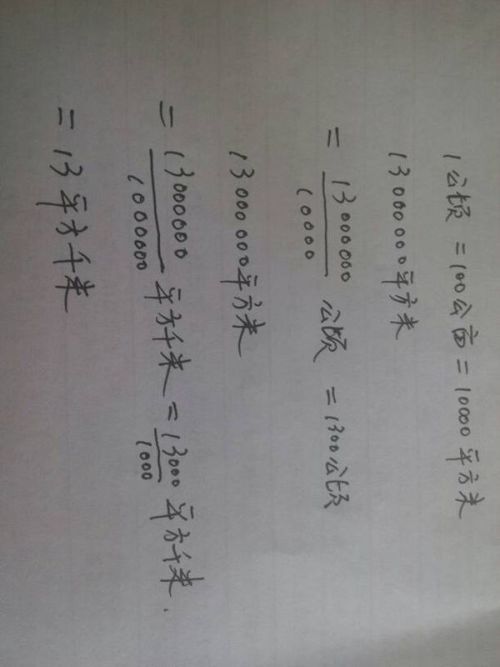 1公顷 = 100公亩 = 10000平方米
13000000平方米
= 13000000/10000 公顷 = 1300公顷
13000000平方米
= 13000000/1000000 平方千米 = 13000/1000 平方千米.
= 13平方千米